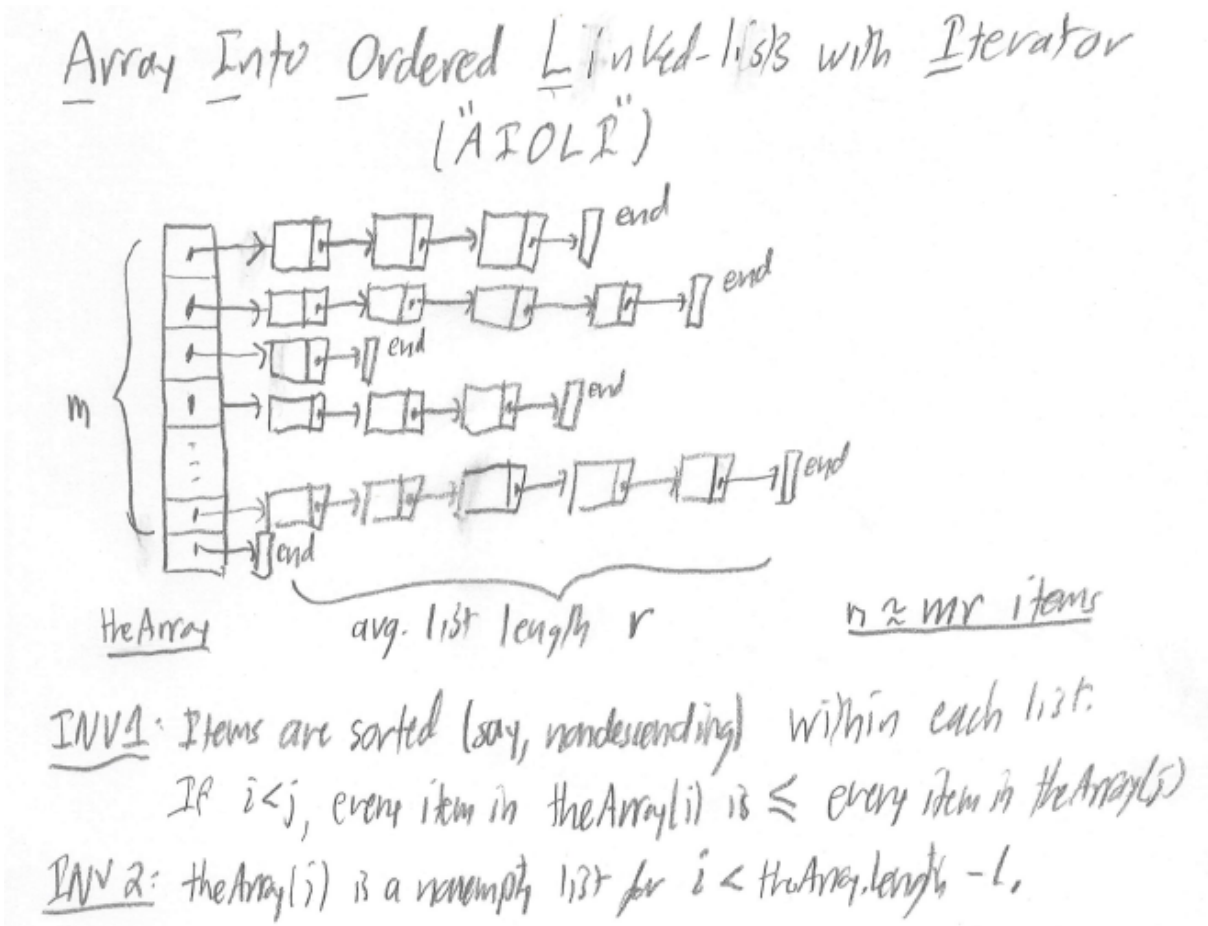 Array Into Ordered Linked-lists with Iterator
("AIOLI")
end
end
end
end
m
end
end
theArray
avg. list length r
n ≈ mr items
INV1: Items are sorted (say, nondescending) within each list.
If i<j, every item in theArray(i) is ≤ every item in theArray(j)
INV 2: theArray(i) is a nonempty list for i < theArray.length - 1.